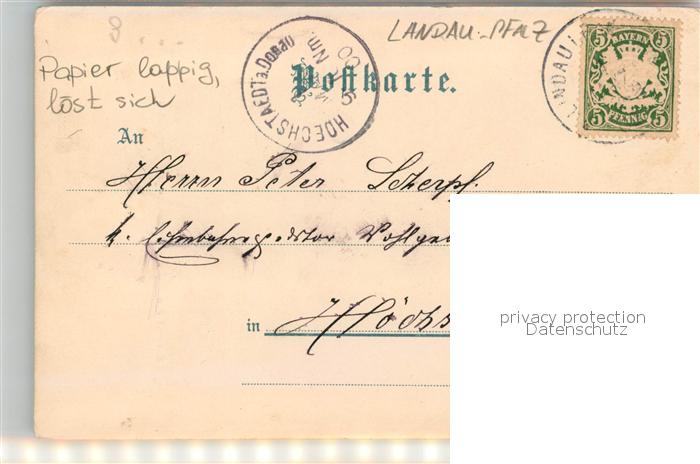 LANDAU-PFALZ
Papier lappig,
löst sich
HOECHSTAEDT a. Donau
Nm.
LANDAU
BAYERN
5 5
5 5
PFENNIG
Postkarte.
An
Herrn Peter Scherpf.
k.
in Höchs
privacy protection
Datenschutz